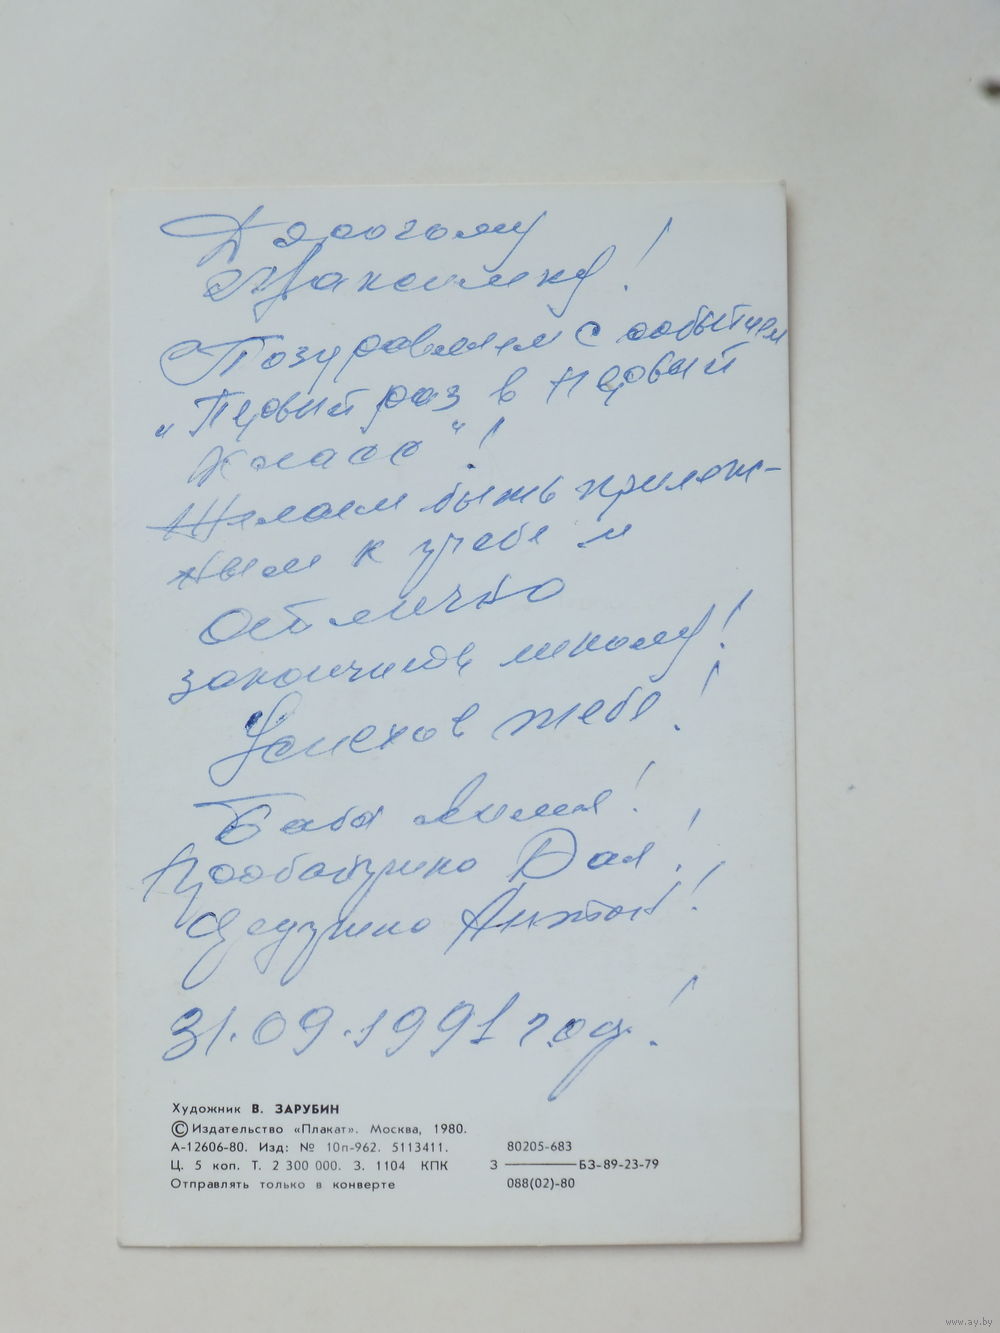 Дорогому
Максимку!
Поздравляем с событием
"Первый раз в первый
класс"!
Желаем быть прилеж-
ным к учебе и
отлично
закончить школу!
Успехов тебе!
Баба Лилия!
Прабабушка Дая!
Дедушка Антон!
31.09.1991 год!
Художник В. ЗАРУБИН
© Издательство «Плакат». Москва, 1980.
А-12606-80. Изд: № 10п-962. 5113411.
Ц. 5 коп. Т. 2 300 000. З. 1104 КПК
Отправлять только в конверте
80205-683
З ———— БЗ-89-23-79
088(02)-80
www.ay.by